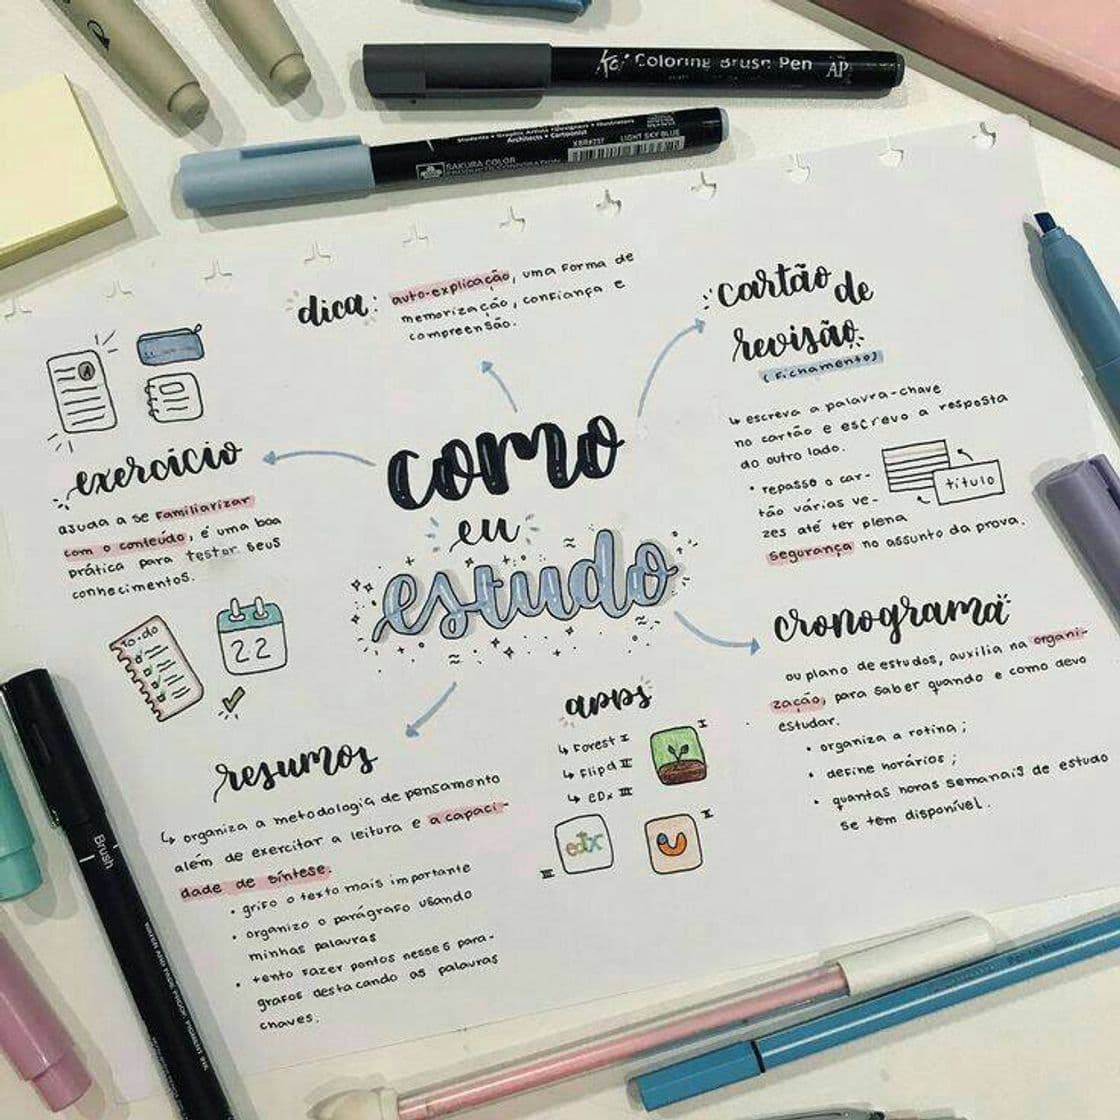 Coloring Brush Pen
AP
Architects • Cartoonist
XBR#737
LIGHT SKY BLUE
SAKURA COLOR
PRODUCTS CORPORATION
dica: auto-explicação, uma forma de
memorização, confiança e
compreensão.
cartão de
revisão
(fichamento)
↳ escreva a palavra-chave
no cartão e escrevo a resposta
do outro lado.
• repasso o car-
tão várias ve-
zes até ter plena
segurança no assunto da prova.
título
exercício
ajuda a se familiarizar
com o conteúdo, é uma boa
prática para testar seus
conhecimentos.
A
como
eu
estudo
to-do
22
cronograma
ou plano de estudos, auxilia na organi-
zação, para saber quando e como devo
estudar.
• organiza a rotina;
• define horários;
• quantas horas semanais de estudo
se têm disponível.
apps
↳ Forest I
↳ Flipd II
↳ eDx III
I
II
III
edx
resumos
↳ organiza a metodologia de pensamento
além de exercitar a leitura e a capaci-
dade de síntese.
• grifo o texto mais importante
• organizo o parágrafo usando
minhas palavras
• tento fazer pontos nesses pará-
grafos destacando as palavras
chaves.
Brush